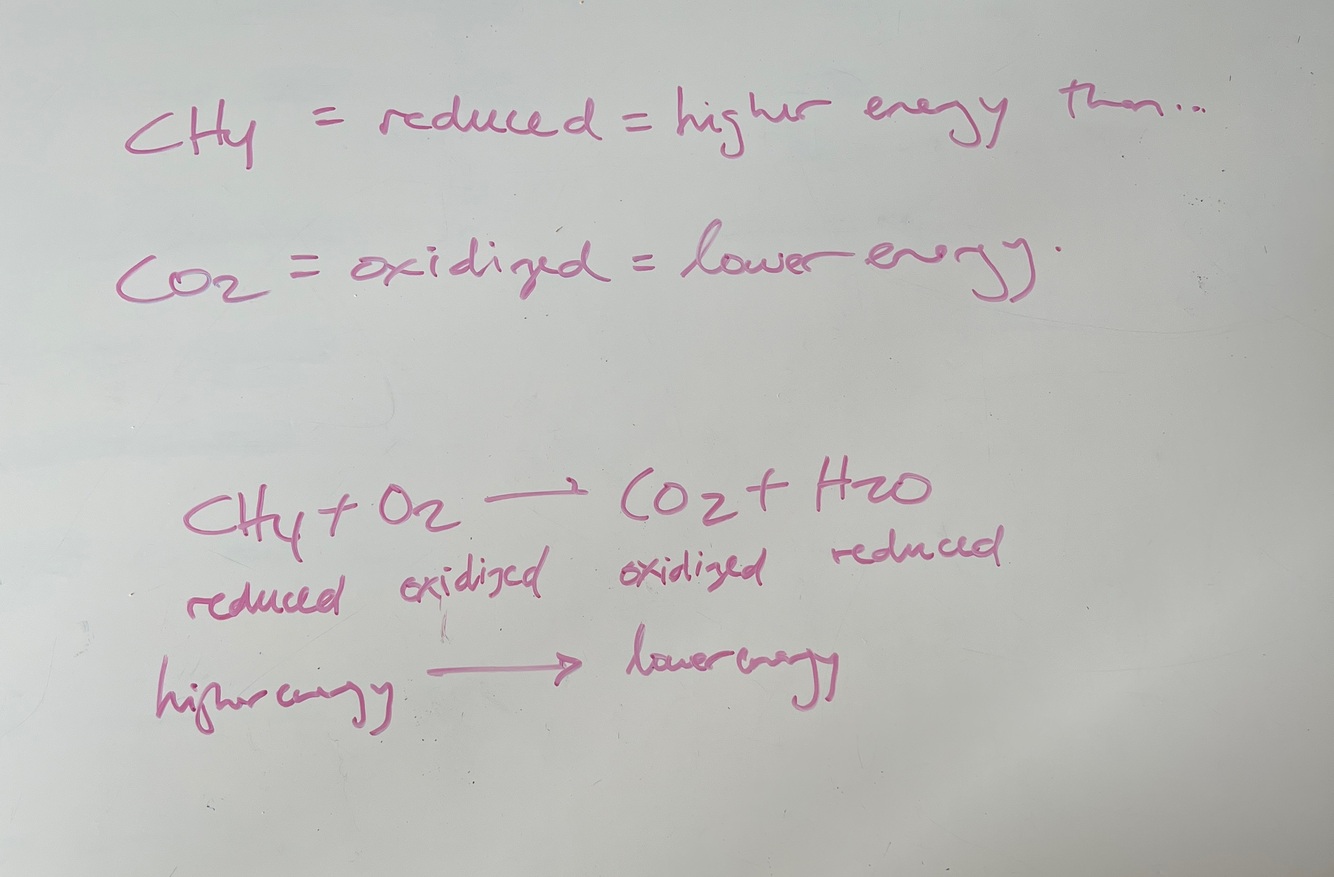 CH4 = reduced = higher energy than...
CO2 = oxidized = lower energy.
CH4 + O2 → CO2 + H2O
reduced oxidized oxidized reduced
higher energy → lower energy